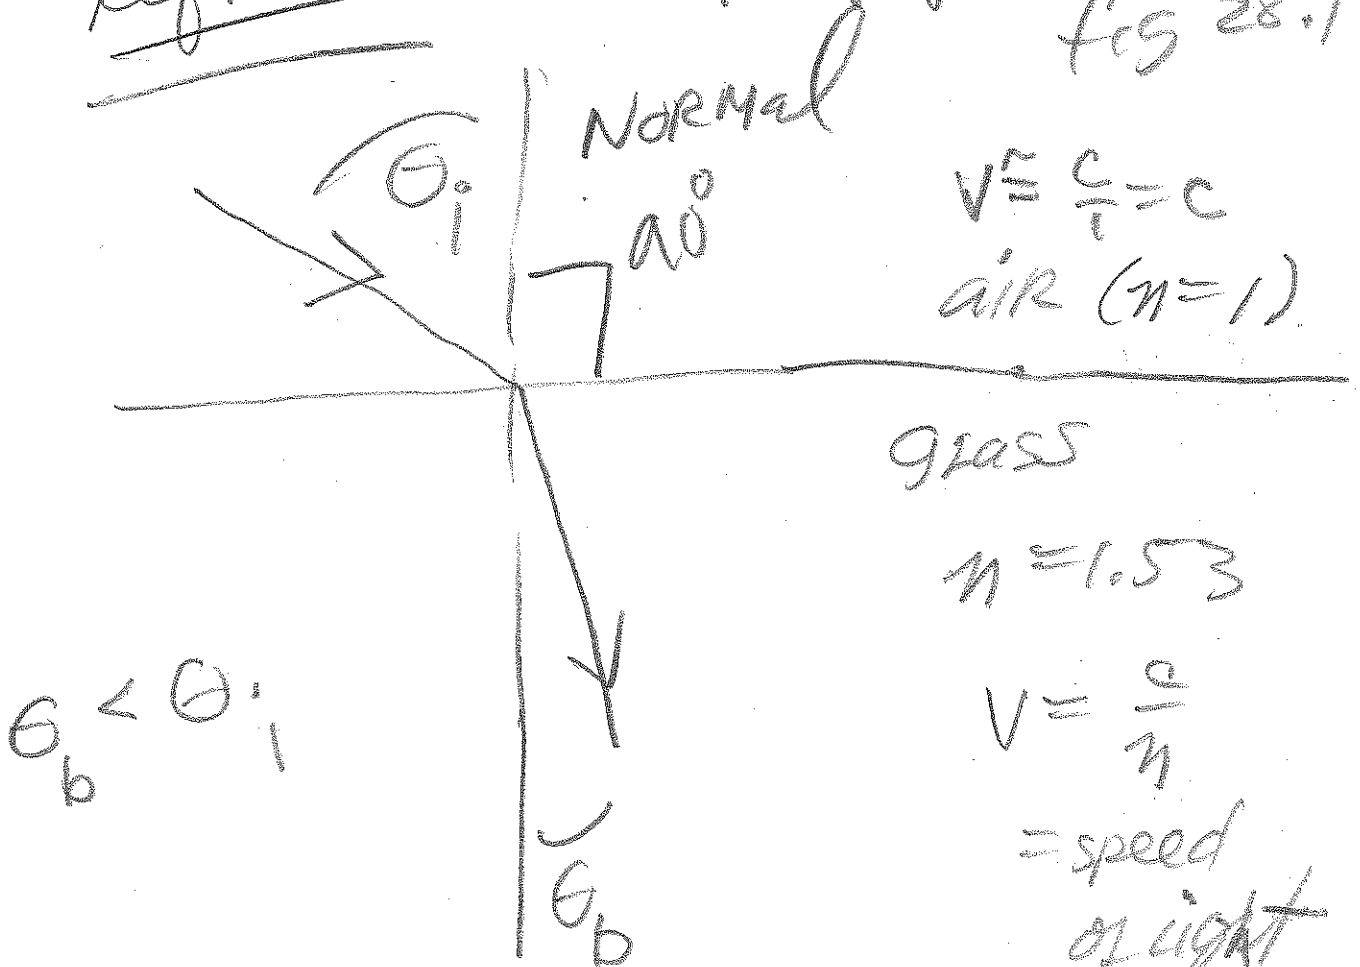 fig 28.1
NORMAL
θi
90°
v ≅ c/1 = c
air (n=1)
glass
n = 1.53
θb < θi
v = c/n
= speed
θb
of light